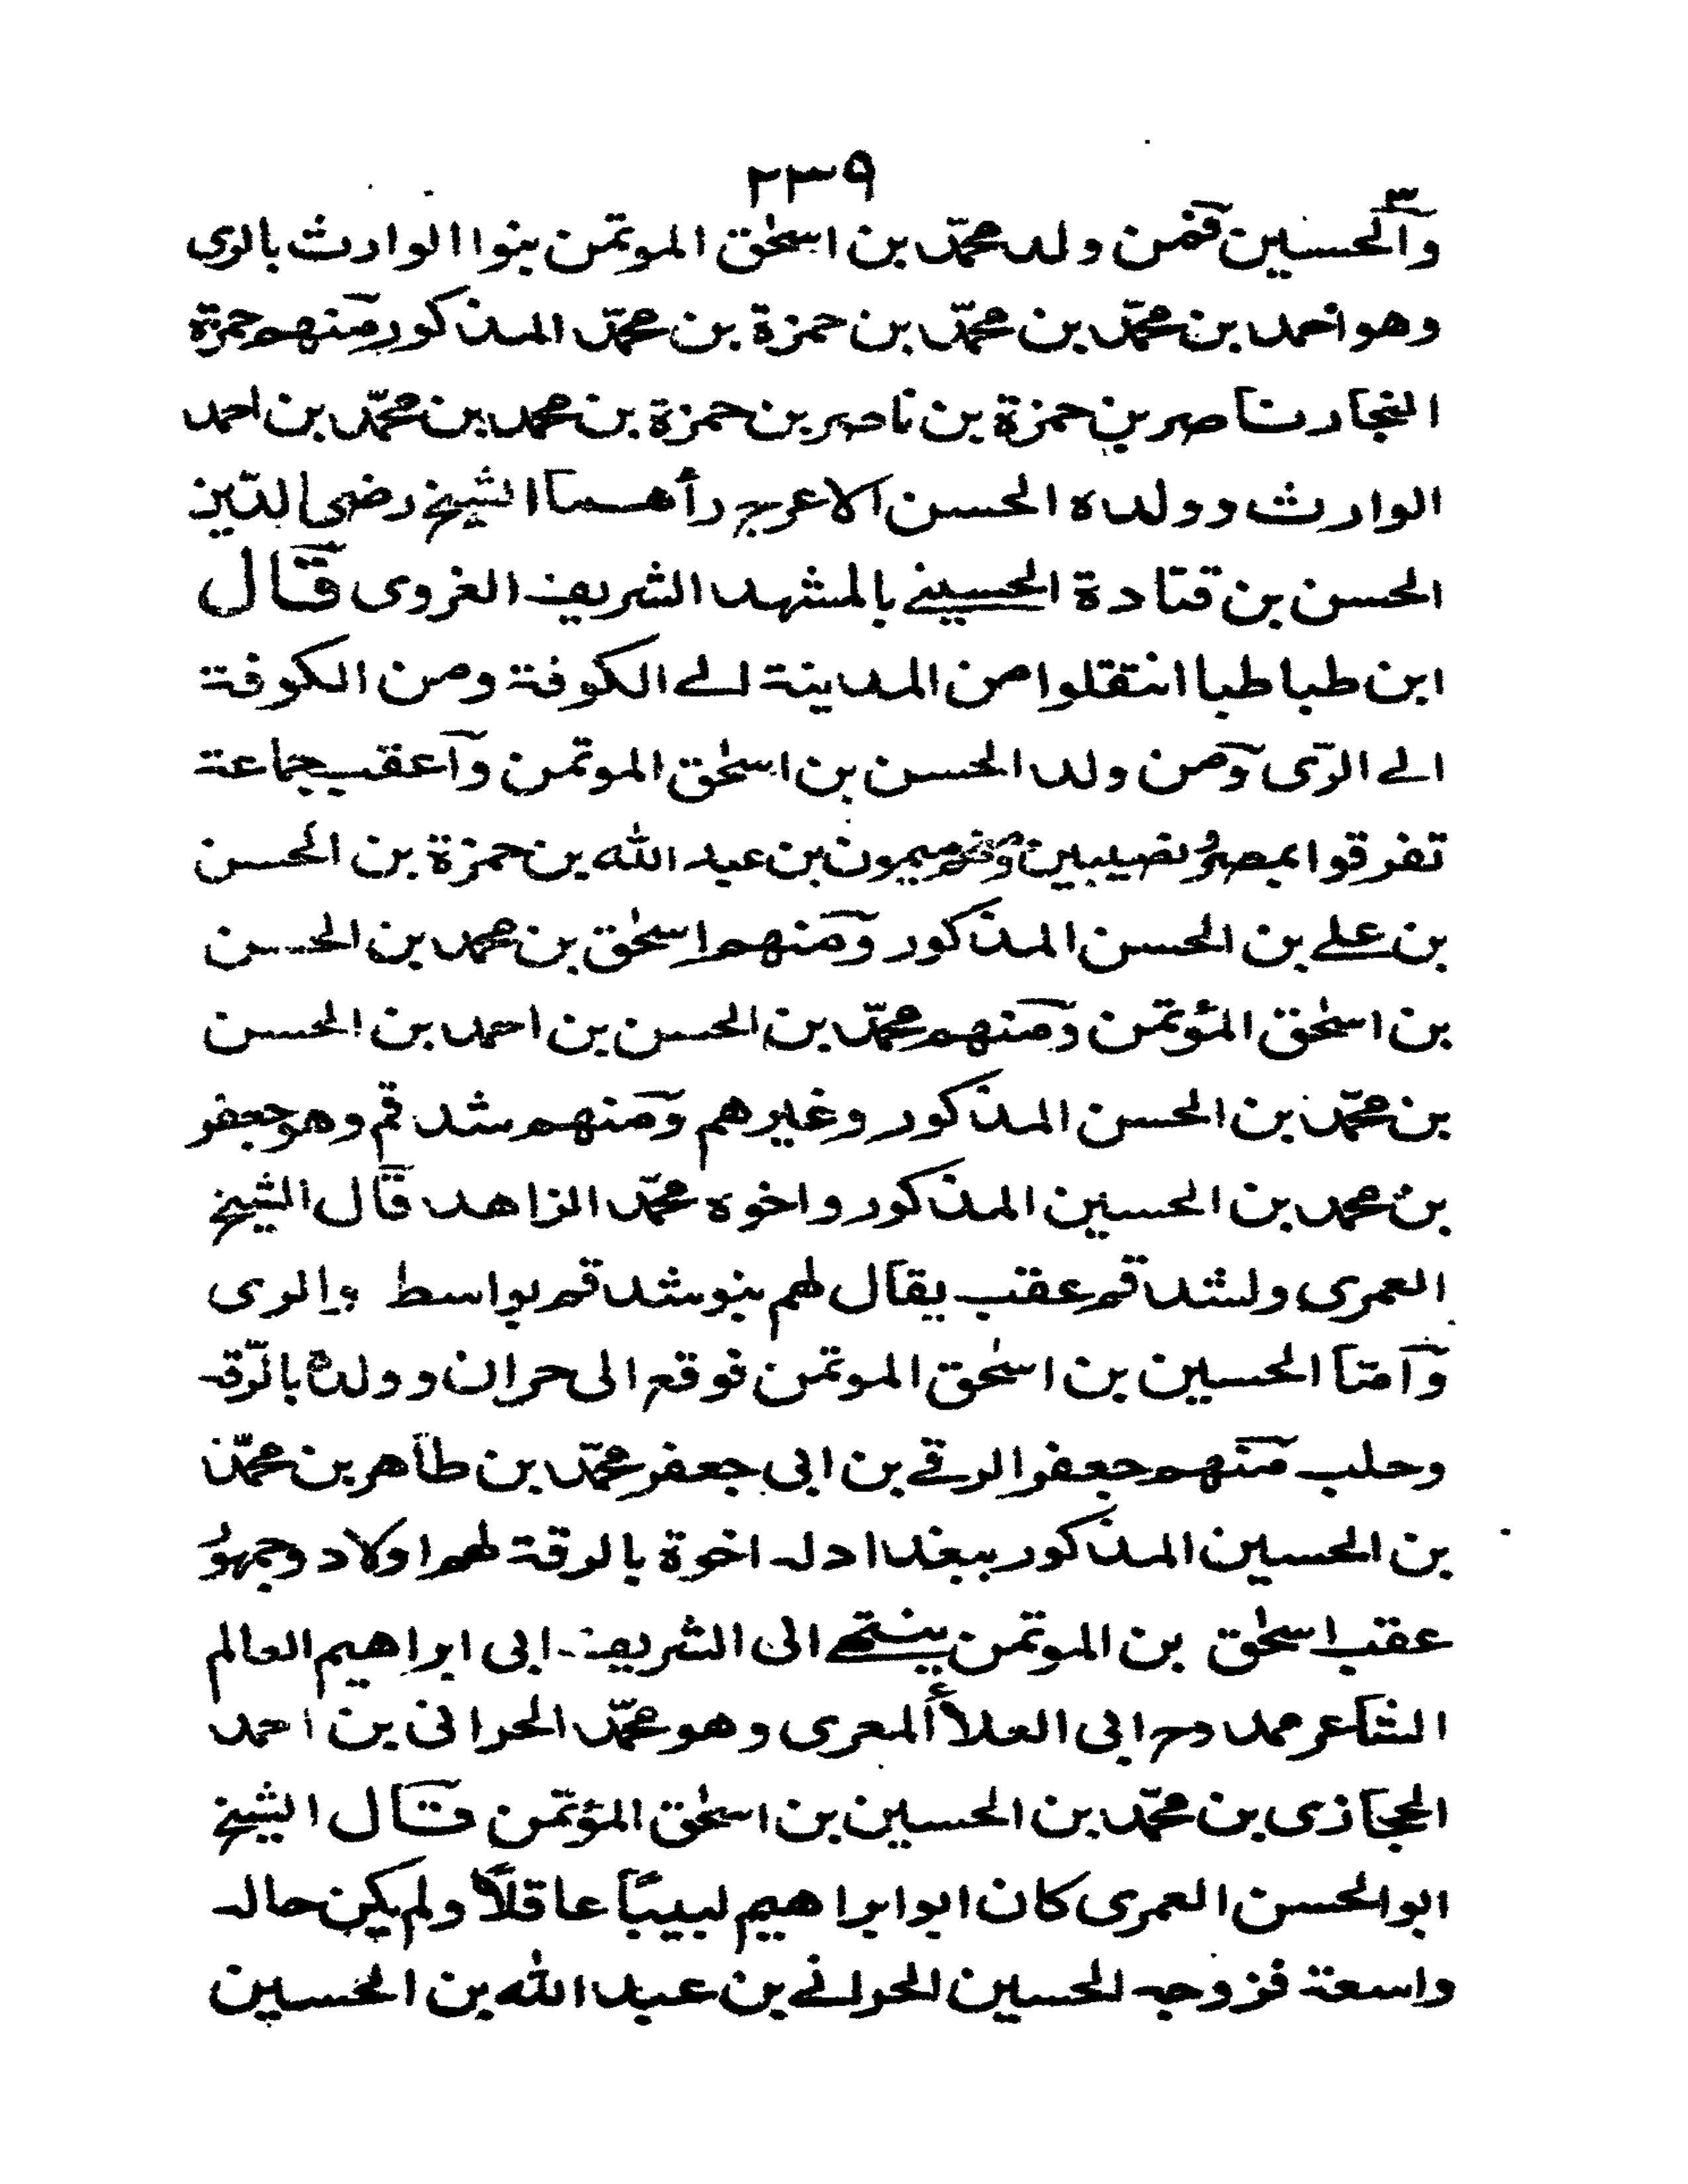 ٢٣٩
والحسين فمن ولد محمّد بن اسحٰق الموتمن بنوا الوارث بالری
وهو احمد بن محمّد بن محمّد بن حمزة بن محمّد المذكور منهم حمزة
النجار بن ناصر بن حمزة بن محمد بن محمّد بن احمد
الوارث وولده الحسن الاعرج رأهما الشيخ رضی الدّين
الحسن بن قتادة الحسينے بالمشهد الشريف الغروی قال
ابن طباطبا انتقلوا من المدينة الے الكوفة ومن الكوفة
الے الرّی ومن ولد الحسن بن اسحٰق الموتمن وآعقب جماعة
تفرقوا بمصر ونصيبين ومنهم ميمون بن عبد الله بن حمزة بن الحسن
بن علے بن الحسن المذكور ومنهم اسحٰق بن محمد بن الحسن
بن اسحٰق المؤتمن ومنهم محمّد بن الحسن بن احمد بن الحسن
بن محمّد بن الحسن المذكور وغيرهم ومنهم شدقم وهو جعفر
بن محمد بن الحسين المذكور واخوه محمّد الزاهد قال الشيخ
العمری ولشدقم عقب يقال لهم بنو شدقم بواسط والری
وآمّا الحسين بن اسحٰق الموتمن فوقع الی حران وولده بالرّقه
وحلب منهم جعفر الرقے بن ابی جعفر محمّد بن طاهر بن محمّد
بن الحسين المذكور ببغداد له اخوة بالرقة لهم اولاد وجمهور
عقب اسحٰق بن الموتمن ينتهے الی الشريف ابی ابراهيم العالم
الشاعر ممدوح ابی العلاأ المعری وهو محمّد الحرانی بن احمد
الحجازی بن محمّد بن الحسين بن اسحٰق المؤتمن قال الشيخ
ابو الحسن العمری كان ابو ابراهيم لبيبًا عاقلاً ولم يكن حاله
واسعة فزوجه الحسين الحرانے بن عبد الله بن الحسين